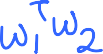 w₁ᵀw₂